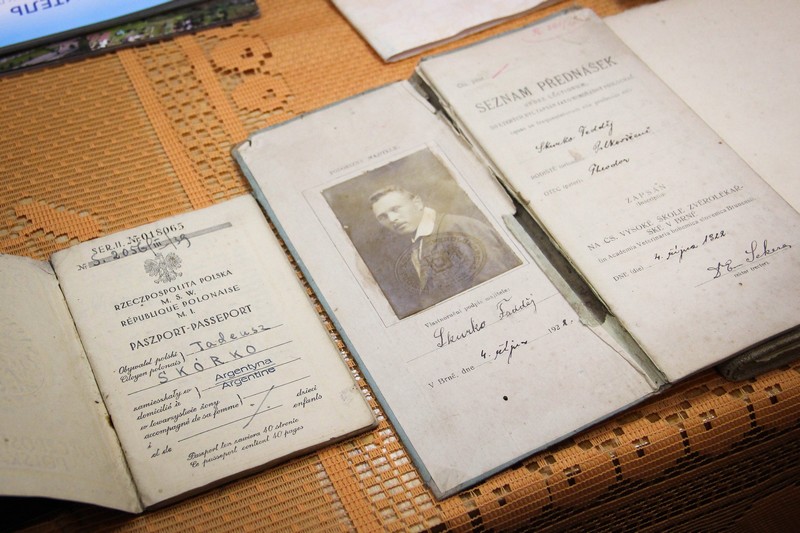 ИТЕЛЬ
SER.II. № 018065
№ S. 2056/III/39
RZECZPOSPOLITA POLSKA
M. S. W.
RÉPUBLIQUE POLONAISE
M. I.
PASZPORT-PASSEPORT
Obywatel polski } Tadeusz
Citoyen polonais
SKÓRKO
zamieszkały w } Argentyna
domicilié à Argentine
w towarzystwie żony
accompagné de sa femme
i dzieci
et de enfants
Paszport ten zawiera 40 stronic
Ce passeport contient 40 pages
Vlastnoruční podpis majitele:
Skurko Fadděj
V Brně, dne 4. října 1922.
SEZNAM PŘEDNÁŠEK
Skurko Fadděj
OTEC Theodor
ZAPSÁN
NA ČS. VYSOKÉ ŠKOLE ZVĚROLÉKAŘ-
SKÉ V BRNĚ
DNE 4. října 1922